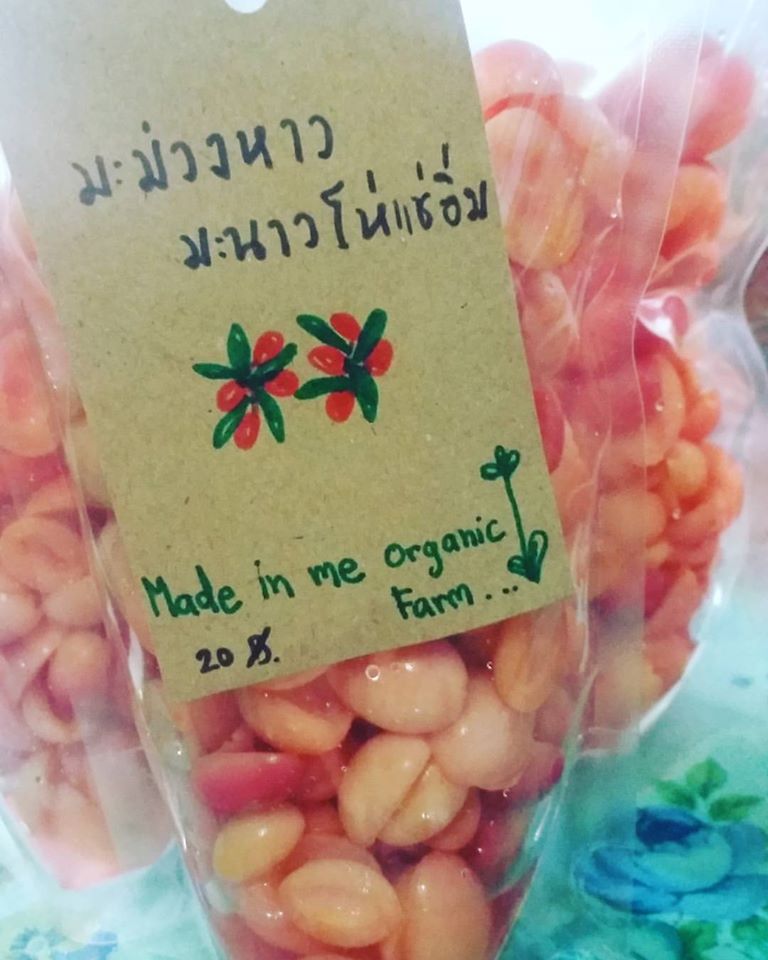 มะม่วงหาว
มะนาวโห่แช่อิ่ม
Made in me organic
Farm...
20 ฿.